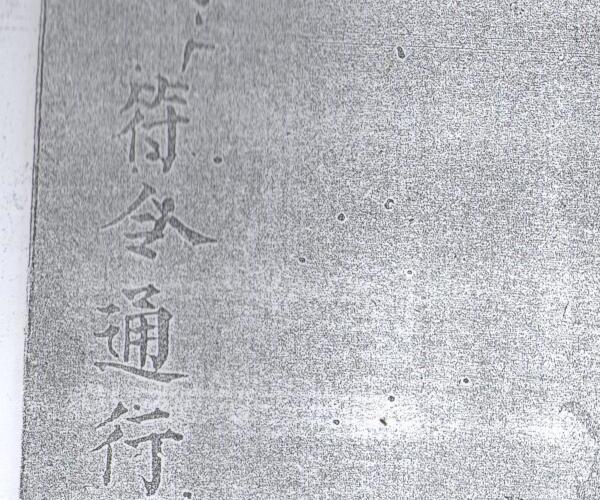 符令通行